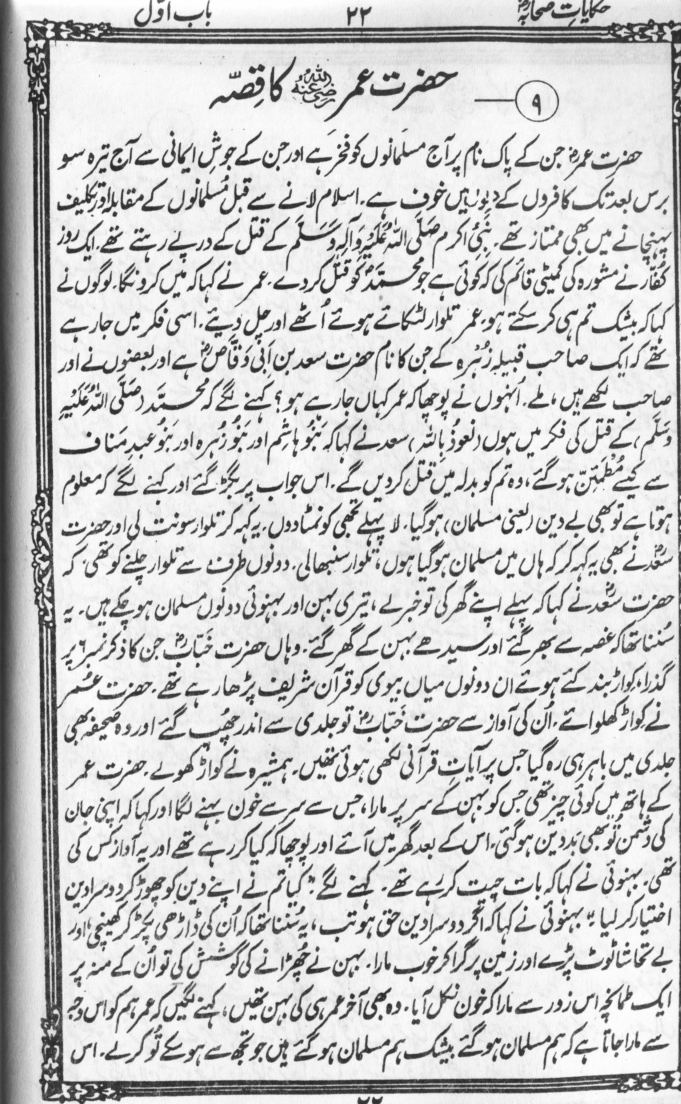 حکایاتِ صحابہؓ ۲۲ باب اوّل
۹ — حضرت عمر رضی اللہ عنہ کا قِصّہ
حضرتِ عمرؓ جن کے پاک نام پر آج مسلمانوں کو فخر ہے اور جن کے جوشِ ایمانی سے آج تیرہ سو
برس بعد تک کافروں کے دلوں میں خوف ہے۔ اسلام لانے سے قبل مُسلمانوں کے مقابلہ اور تکلیف
پہنچانے میں بھی ممتاز تھے۔ نبیِّ اکرم صَلَّی اللہُ عَلَیْہِ وَآلِہٖ وَسَلَّم کے قتل کے درپے رہتے تھے۔ ایک روز
کُفّار نے مشورہ کی کمیٹی قائم کی کہ کوئی ہے جو محمّدؐ کو قتل کر دے۔ عمر نے کہا کہ میں کرونگا۔ لوگوں نے
کہا کہ بیشک تم ہی کر سکتے ہو، عمر تلوار لٹکاتے ہوئے اُٹھے اور چل دیئے۔ اسی فکر میں جارہے
تھے کہ ایک صاحب قبیلہ زُہرہ کے جن کا نام حضرت سعد بن اَبی وَقّاصؓ ہے اور بعضوں نے اور
صاحب لکھے ہیں، ملے۔ اُنہوں نے پوچھا کہ عمر کہاں جارہے ہو؟ کہنے لگے کہ محمّد (صَلَّی اللہُ عَلَیْہِ
وَسَلَّم) کے قتل کی فکر میں ہوں (نعوذ باللہ)، سعد نے کہا کہ بَنُو ہاشم اور بَنُو زُہرہ اور بَنُو عبدِ مَناف
سے کیسے مُطْمَئِن ہوگئے، وہ تم کو بدلہ میں قتل کر دیں گے۔ اس جواب پر بگڑ گئے اور کہنے لگے کہ معلوم
ہوتا ہے تو بھی بے دین (یعنی مسلمان) ہوگیا۔ لا پہلے تجھی کو نمٹا دوں۔ یہ کہہ کر تلوار سونت لی اور حضرت
سعدؓ نے بھی یہ کہہ کر کہ ہاں میں مسلمان ہوگیا ہوں، تلوار سنبھالی۔ دونوں طرف سے تلوار چلنے کو تھی کہ
حضرت سعدؓ نے کہا کہ پہلے اپنے گھر کی تو خبر لے، تیری بہن اور بہنوئی دونوں مسلمان ہو چکے ہیں۔ یہ
سُننا تھا کہ غصہ سے بھر گئے اور سیدھے بہن کے گھر گئے۔ وہاں حضرت خَبّابؓ جن کا ذکر نمبر ۶ پر
گذرا، کواڑ بند کئے ہوئے ان دونوں میاں بیوی کو قرآن شریف پڑھا رہے تھے۔ حضرت عُمر
نے کواڑ کھلوائے۔ اُن کی آواز سے حضرت خَبّابؓ تو جلدی سے اندر چھپ گئے اور وہ صحیفہ بھی
جلدی میں باہر ہی رہ گیا جس پر آیاتِ قرآنی لکھی ہوئی تھیں۔ ہمشیرہ نے کواڑ کھولے۔ حضرت عمر
کے ہاتھ میں کوئی چیز تھی جس کو بہن کے سر پر مارا، جس سے سر سے خون بہنے لگا اور کہا کہ اپنی جان
کی دُشمن تُو بھی بَددین ہوگئی۔ اس کے بعد گھر میں آئے اور پوچھا کہ کیا کررہے تھے اور یہ آواز کس کی
تھی۔ بہنوئی نے کہا کہ بات چیت کررہے تھے۔ کہنے لگے "کیا تم نے اپنے دین کو چھوڑ کر دوسرا دین
اختیار کر لیا"، بہنوئی نے کہا کہ اگر دوسرا دین حق ہو تب، یہ سُننا تھا کہ اُن کی ڈاڑھی پکڑ کر کھینچی، اور
بے تحاشا ٹوٹ پڑے اور زمین پر گرا کر خوب مارا۔ بہن نے چھڑانے کی کوشش کی تو اُن کے منہ پر
ایک طمانچہ اس زور سے مارا کہ خون نکل آیا۔ وہ بھی آخر عمر ہی کی بہن تھیں، کہنے لگیں کہ عمر ہم کو اس وجہ
سے مارا جاتا ہے کہ ہم مسلمان ہوگئے بیشک ہم مسلمان ہوگئے ہیں جو تجھ سے ہو سکے تُو کر لے۔ اس
۲۲